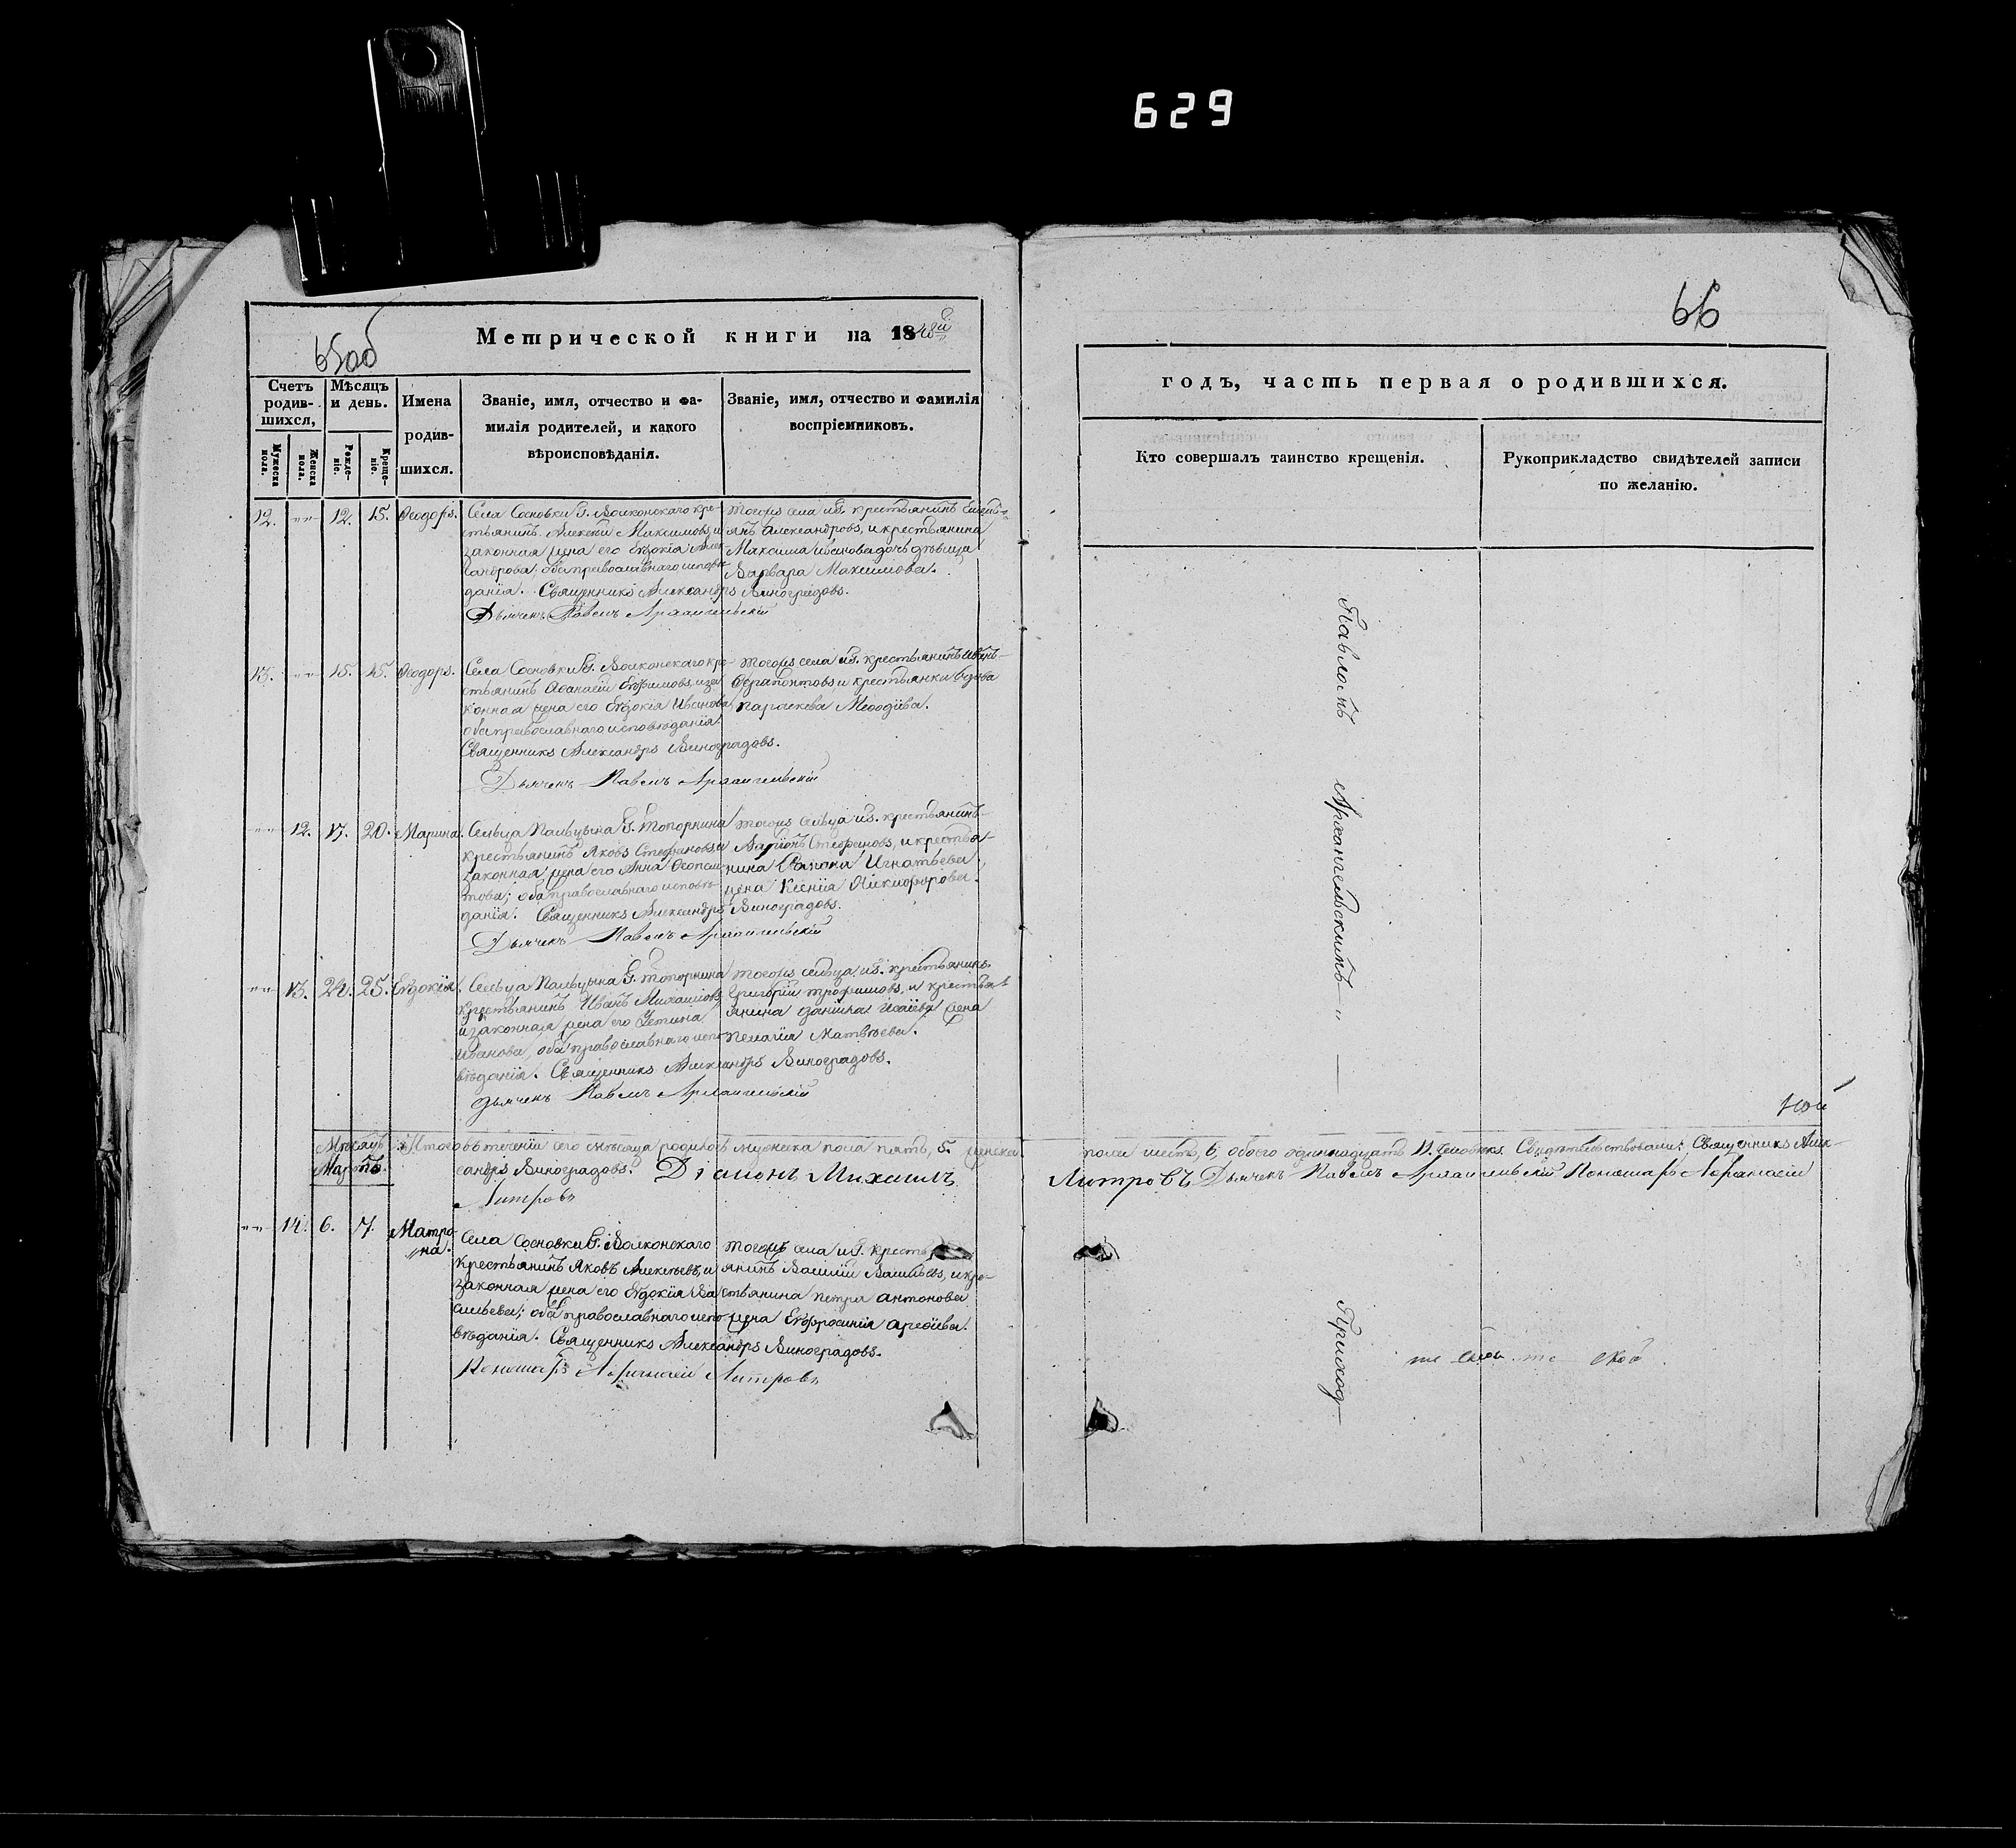 629
65об
Метрической книги на 1848й
Счетъ родив-шихся,
Мѣсяцъ и день.
Имена родив-шихся.
Званіе, имя, отчество и фа-
милія родителей, и какого
вѣроисповѣданія.
Званіе, имя, отчество и фамилія
воспріемниковъ.
Мужеска пола.
Женска пола.
Рожде-ніе.
Креще-ніе.
12. 12. 15. Ѳеодоръ.
Села Сосновки Г. Волконскаго кре-
стьянинъ Алексѣй Максимовъ, и
законная жена его Евдокія Алек-
сандрова; оба православнаго исповѣ-
данія. Священникъ Александръ Виноградовъ.
Дьячекъ Павелъ Архангельскій
тогожъ села и Г. крестьянинъ
янъ Александровъ, и крестьянина
Максима Иванова дочь дѣвица
Варвара Максимова.
13. 15. 15. Ѳеодоръ.
Села Сосновки Г. Волконскаго кре-
стьянинъ Аѳанасій Ефимовъ, и за
конная жена его Евдокія Иванова
оба православнаго исповѣданія.
Священникъ Александръ Виноградовъ.
Дьячекъ Павелъ Архангельскій
тогожъ села и Г. крестьянинъ Иванъ
Ферапонтовъ и крестьянки вдова
параскева Меѳодіева.
12. 17. 20. Марина.
Сельца Пальцына Г. Топорнина
крестьянинъ Яковъ Стефановъ, и
законная жена его Анна Ѳеопем-
това; оба православнаго исповѣ-
данія. Священникъ Александръ Виноградовъ.
Дьячекъ Павелъ Архангельскій
тогожъ сельца и Г. крестьянинъ
Ларіонъ Стефановъ, и крестья-
нина Игнатьева
жена Ксенія Никифорова.
13. 24. 25. Евдокія.
Сельца Пальцына Г. Топорнина
Крестьянинъ Иванъ Михайловъ
и законная жена его Устина
Иванова, оба православнаго испо-
вѣданія. Священникъ Александръ Виноградовъ.
Дьячекъ Павелъ Архангельскій
тогожъ сельца и Г. крестьянинъ
Григорій трофимовъ, и крестья
янина данила Исаіева жена
пелагія Матвѣева.
Мѣсяцъ
Мартъ.
Итого въ теченіи сего мѣсяца родилось мужеска пола пять, 5. женска
сандръ Виноградовъ. Діаконъ Михаилъ
Литровъ
14. 6. 7. Матро-
на.
Села Сосновки Г. Волконскаго
Крестьянинъ Яковъ Алексѣевъ, и
законная жена его Евдокія Ва
сильева; оба православнаго испо-
вѣданія. Священникъ Александръ Виноградовъ.
Пономарь Аѳанасій Литровъ
тогожъ села и Г. кресть
янинъ Василій Васильевъ, и кре-
стьянина петра антонова
жена Евфросинія
66
годъ, часть первая о родившихся.
Кто совершалъ таинство крещенія.
Рукоприкладство свидѣтелей записи
по желанію.
Павломъ Архангельскимъ
ной
пола шесть, 6, обоего одиннадцать 11. человѣкъ. Свидѣтельствовали: Священникъ Алек-
Литровъ Дьячекъ Павелъ Архангельскій Пономарь Аѳанасій
Приход